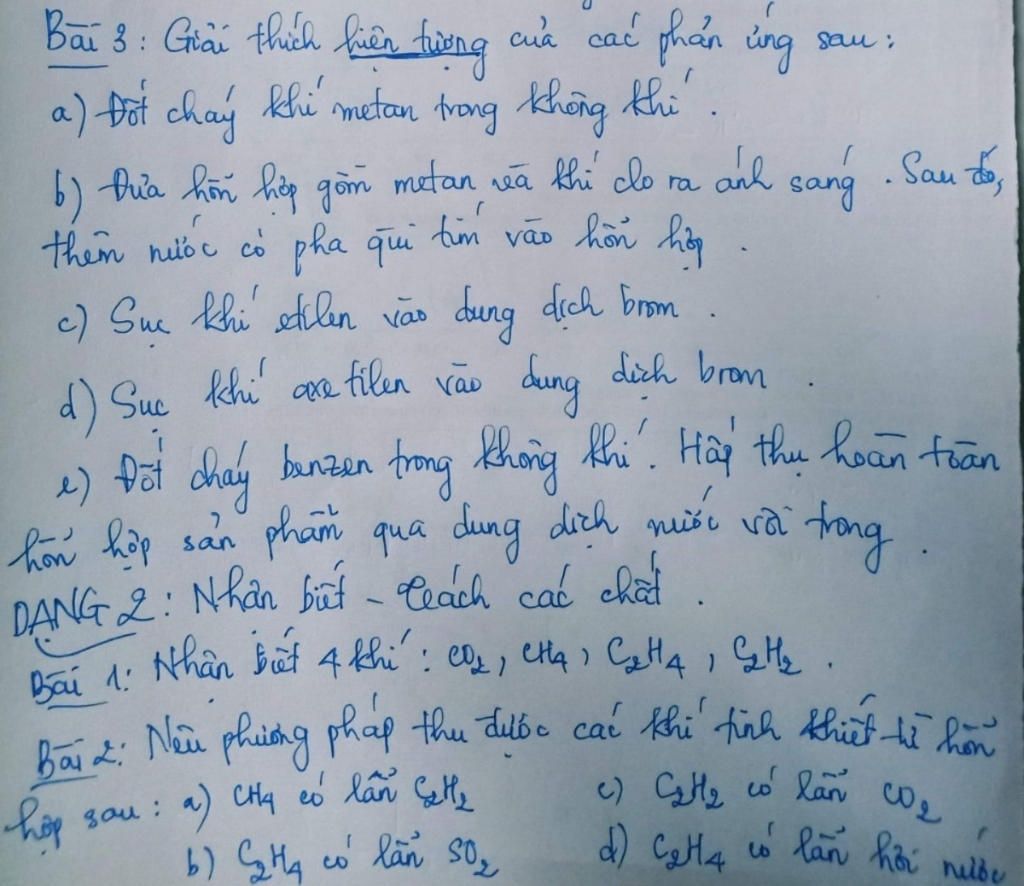 Bài 3: Giải thích hiện tượng của các phản ứng sau:
a) Đốt cháy khí metan trong không khí.
b) Đưa hỗn hợp gồm metan và khí clo ra ánh sáng. Sau đó,
thêm nước có pha quì tím vào hỗn hợp.
c) Sục khí etilen vào dung dịch brom.
d) Sục khí axetilen vào dung dịch brom.
e) Đốt cháy benzen trong không khí. Hấp thụ hoàn toàn
hỗn hợp sản phẩm qua dung dịch nước vôi trong.
DẠNG 2: Nhận biết - Tách các chất.
Bài 1: Nhận biết 4 khí: CO₂, CH₄, C₂H₄, C₂H₂.
Bài 2: Nêu phương pháp thu được các khí tinh khiết từ hỗn
hợp sau: a) CH₄ có lẫn C₂H₂ c) C₂H₂ có lẫn CO₂
b) C₂H₄ có lẫn SO₂ d) C₂H₄ có lẫn hơi nước